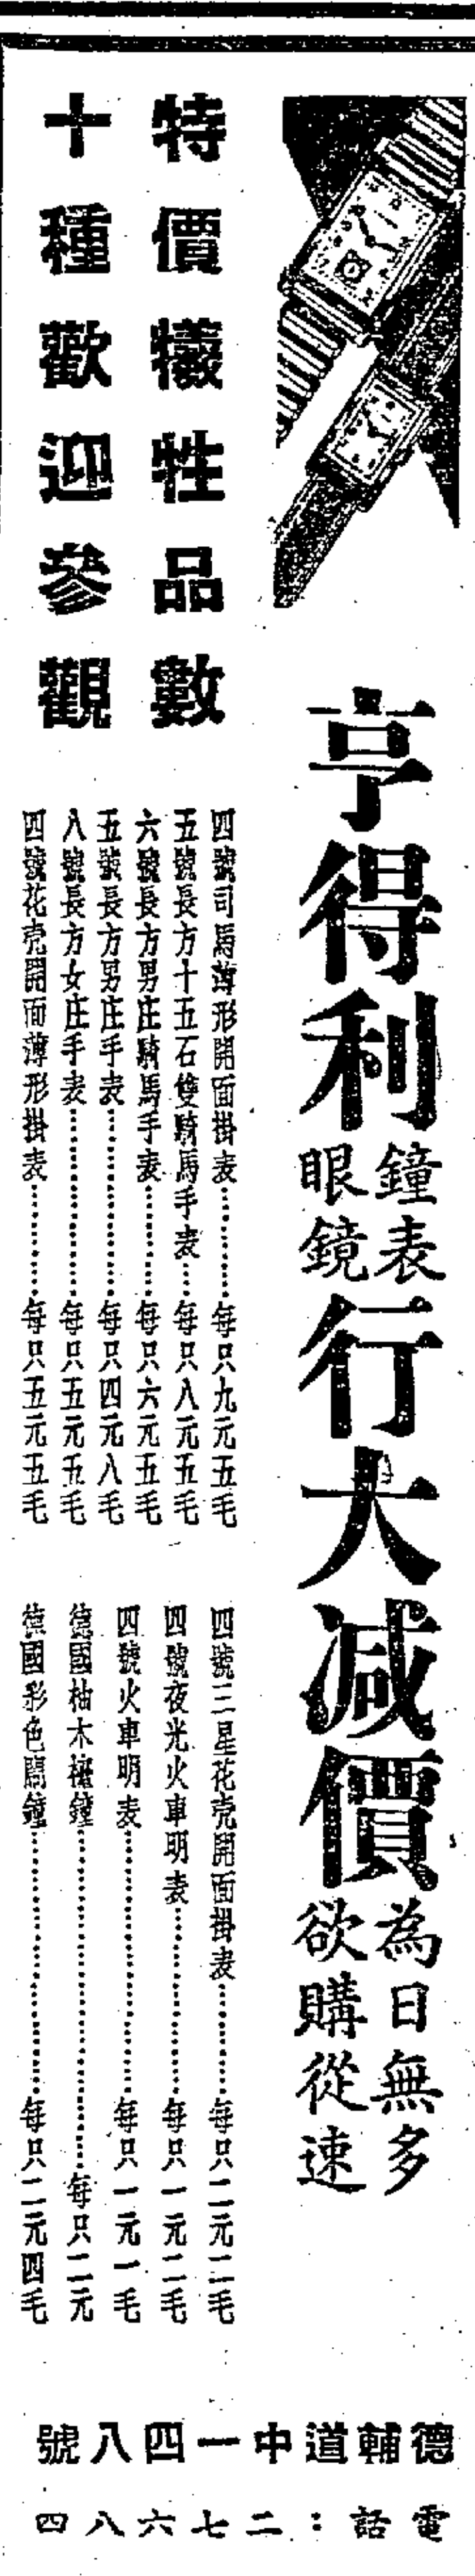 亨得利鐘表眼鏡行大減價為日無多欲購從速
特價犧牲品數
十種歡迎參觀
四號司馬薄形開面掛表…………每只九元五毛
五號長方十五石雙騎馬手表……每只八元五毛
六號長方男庄騎馬手表…………每只六元五毛
五號長方男庄手表………………每只四元八毛
八號長方女庄手表………………每只五元五毛
四號花壳開面薄形掛表…………每只五元五毛
四號三星花壳開面掛表…………每只二元二毛
四號夜光火車明表………………每只一元二毛
四號火車明表……………………每只一元一毛
德國柚木檯鐘……………………每只二元
德國彩色鬧鐘……………………每只二元四毛
德輔道中一四八號
電話：二七六八四